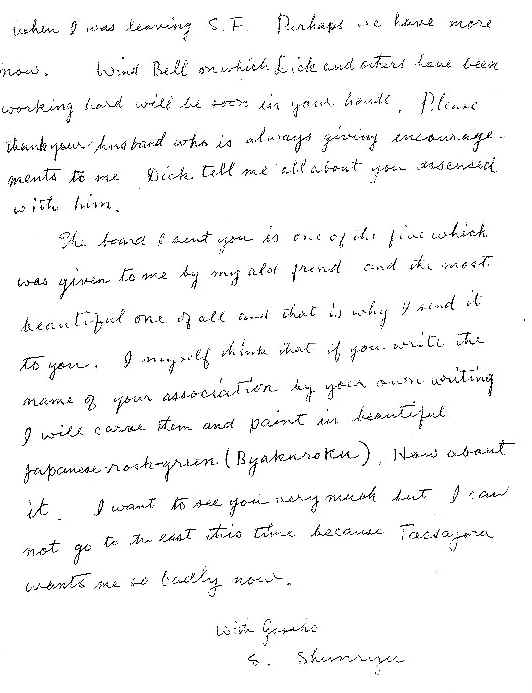 when I was leaving S.F. Perhaps we have more
now. Wind Bell on which Dick and others have been
working hard will be soon in your hands. Please
thank your husband who is always giving encourage-
ments to me. Dick tell me all about you
with him.
The board I sent you is one of the five which
was given to me by my old friend and the most
beautiful one of all and that is why I send it
to you. I myself think that if you write the
name of your association by your own writing
I will carve them and paint in beautiful
Japanese rock-green (Byakuroku). How about
it. I want to see you very much but I can
not go to the east this time because Tassajara
wants me so badly now.
With Gassho
S. Shunryu